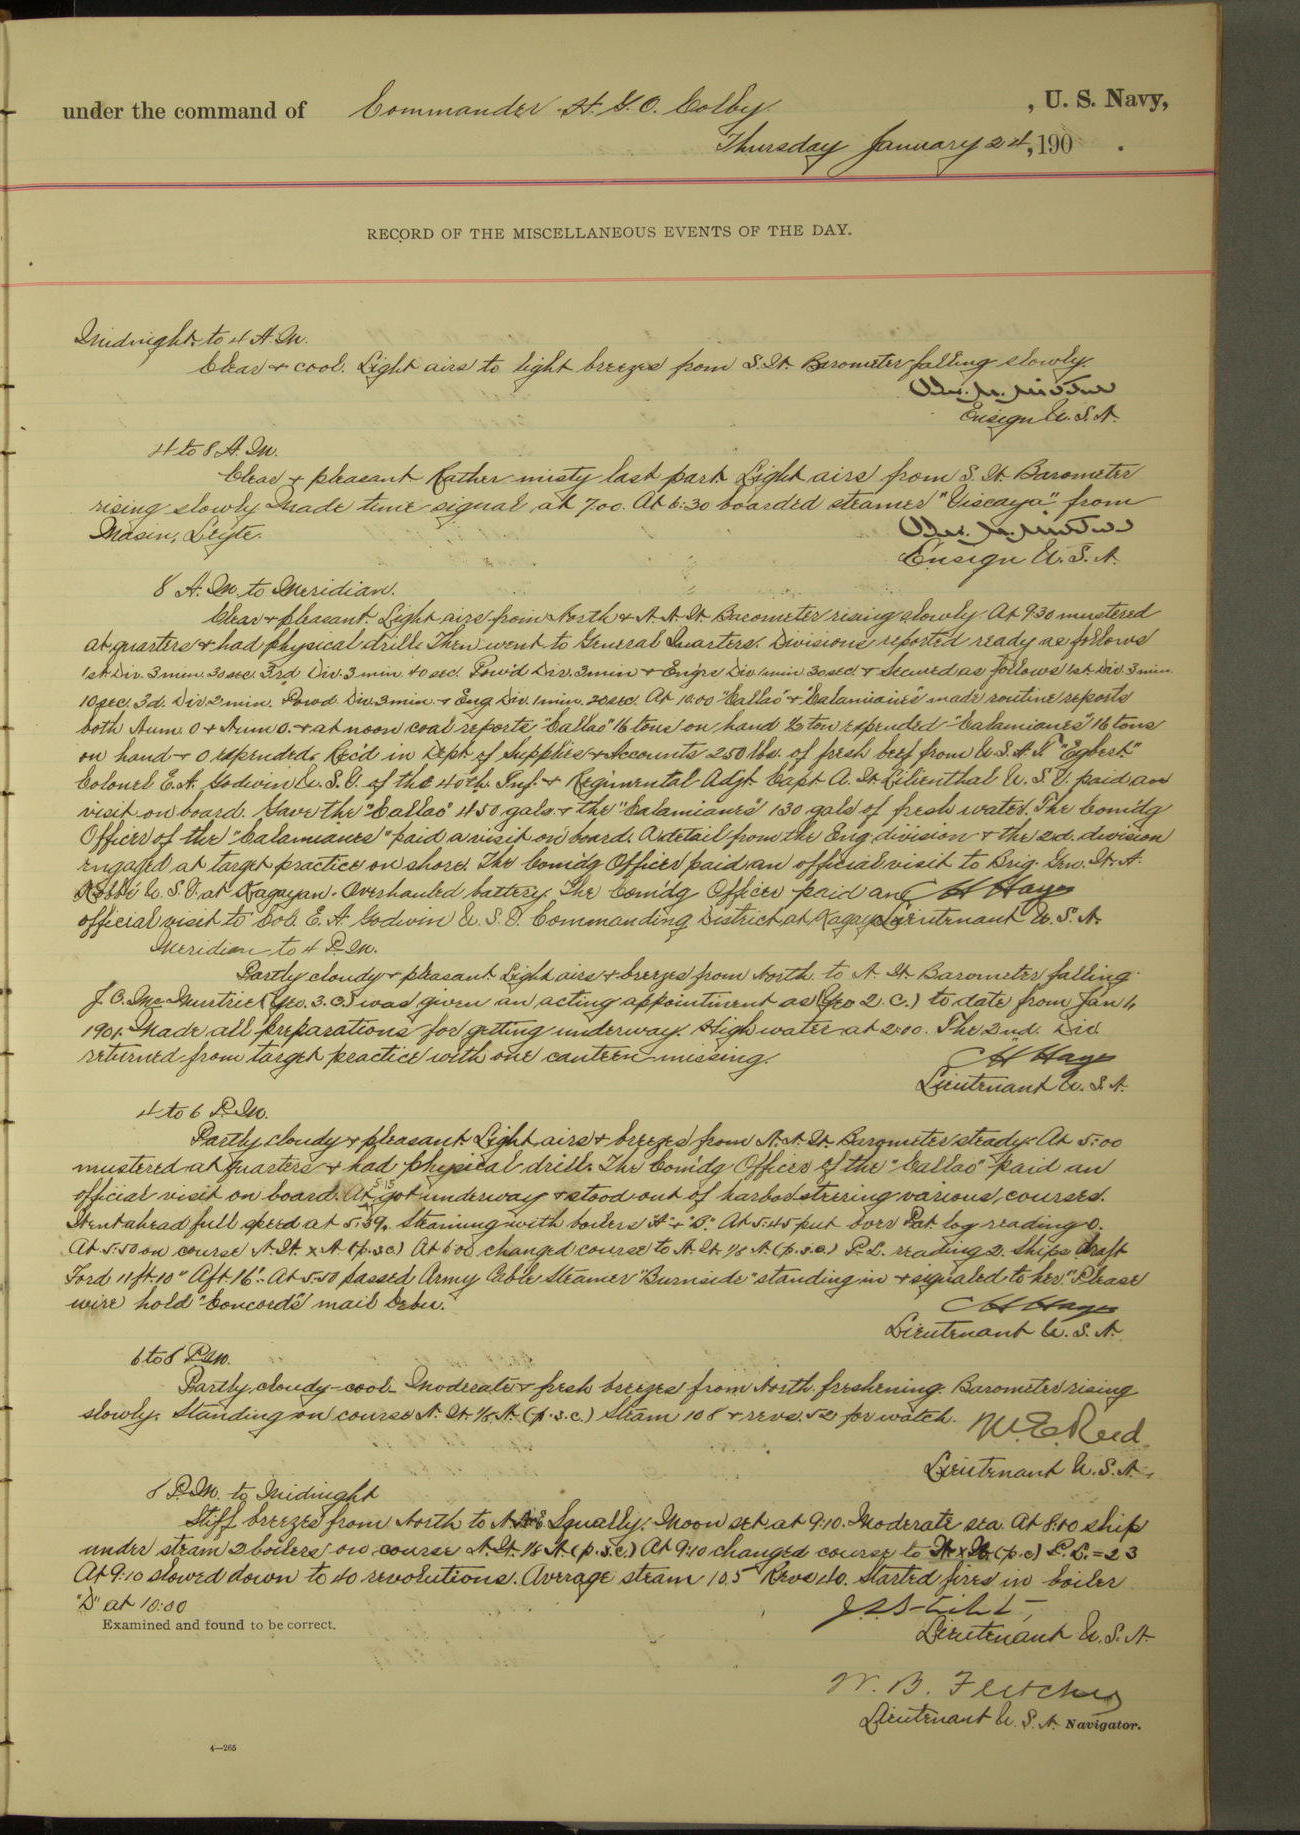 under the command of Commander H. G. O. Colby, U. S. Navy,
Thursday January 24, 190 .
RECORD OF THE MISCELLANEOUS EVENTS OF THE DAY.
Midnight to 4 A.M.
Clear & cool. Light airs to light breezes from S.W. Barometer falling slowly.
Ensign U.S.N.
4 to 8 A.M.
Clear & pleasant Rather misty last part Light airs from S.W. Barometer
rising slowly Made time signal at 7.00. At 6:30 boarded steamer "Viscaya" from
Masin, Leyte.
Ensign U.S.N.
8 A.M. to Meridian.
Clear & pleasant. Light airs from North & N.N.W. Barometer rising slowly At 9.30 mustered
at quarters & had physical drill. Then went to General Quarters. Divisions reported ready as follows
1st Div. 3 min. 30 sec. 3rd Div. 3 min. 40 sec. Pow'd Div. 3 min & Eng'rs Div. 1 min 30 sec. & secured as follows 1st Div. 3 min.
10 sec. 3d. Div. 2 min. Powd Div. 3 min. & Eng Div. 1 min. 20 sec. At 10.00 "Callao" & "Calamianes" made routine reports
both Num. 0 & Num 0. & at noon coal reports, "Callao" 16 tons on hand ½ ton expended "Calamianes" 16 tons
on hand & 0 expended. Rec'd in Dept of Supplies & Accounts 250 lbs. of fresh beef from U.S.A.T. "Egbert."
Colonel E.A. Godwin U.S.V. of the 40th. Inf. & Regimental Adgt. Capt A. W. Lilienthal U.S.V. paid an
visit on board. Gave the "Callao" 450 gals. & the "Calamianes" 130 gals of fresh water. The Com'dg
Officer of the "Calamianes" paid a visit on board. A detail from the Eng. division & the 2d. division
engaged at target practice on shore. The Com'dg Officer paid an official visit to Brig. Gen. W. A.
Kobbé U.S.V. at Kagayan. Overhauled battery. The Com'dg Officer paid an C H Hayes
official visit to Col. E. A. Godwin U.S.V. Commanding District at Kagayan Lieutenant U.S.N.
Meridian to 4 P.M.
Partly cloudy & pleasant Light airs & breezes from North to N.W. Barometer falling
J. C. McMurtrie (Yeo. 3.C.) was given an acting appointment as (Yeo 2.C.) to date from Jan 1,
1901. Made all preparations for getting underway. High water at 2:00. The 2nd. Div
returned from target practice with one canteen missing.
C H Hayes
Lieutenant U.S.N.
4 to 6 P.M.
Partly cloudy & pleasant. Light airs & breezes from N.N.W. Barometer steady. At 5:00
mustered at quarters & had physical drill. The Com'dg Officer of the "Callao" paid an
official visit on board. At 5:15 got underway & stood out of harbor steering various courses.
Went ahead full speed at 5:39. Steaming with boilers "A" & "B." At 5:45 put over Pat. log reading 0.
At 5.50 on course N.W. x N (p.s.c) At 6 00 changed course to N.W. ⅛ N. (p.s.c.) P.L. reading 2. Ships draft
For'd 11 ft. 10" Aft. 16'. At 5.50 passed Army Cable Steamer "Burnside" standing in & signaled to her. "Please
wire hold "Concord's" mail Cebu."
C H Hayes
Lieutenant U.S.N.
6 to 8 P.M.
Partly cloudy-cool. Moderate & fresh breezes from North freshening. Barometer rising
slowly. Standing on course N.W. ⅛ N. (p.s.c.) Steam 108 & revs. 52 for watch.
W. E. Reed
Lieutenant U.S.N.
8 P.M. to Midnight
Stiff breezes from North to Squally. Moon set at 9:10. Moderate sea. At 8:00 ship
under steam 2 boilers on course N.W. ⅛ N. (p.s.c.) At 9:10 changed course to (p.c) P.L. = 23
At 9:10 slowed down to 40 revolutions. Average steam 105 Revs 40. Started fires in boiler
"D" at 10:00
Examined and found to be correct.
Lieutenant U.S.N.
W. B. Fletcher
Lieutenant U.S.N. Navigator.
4—265